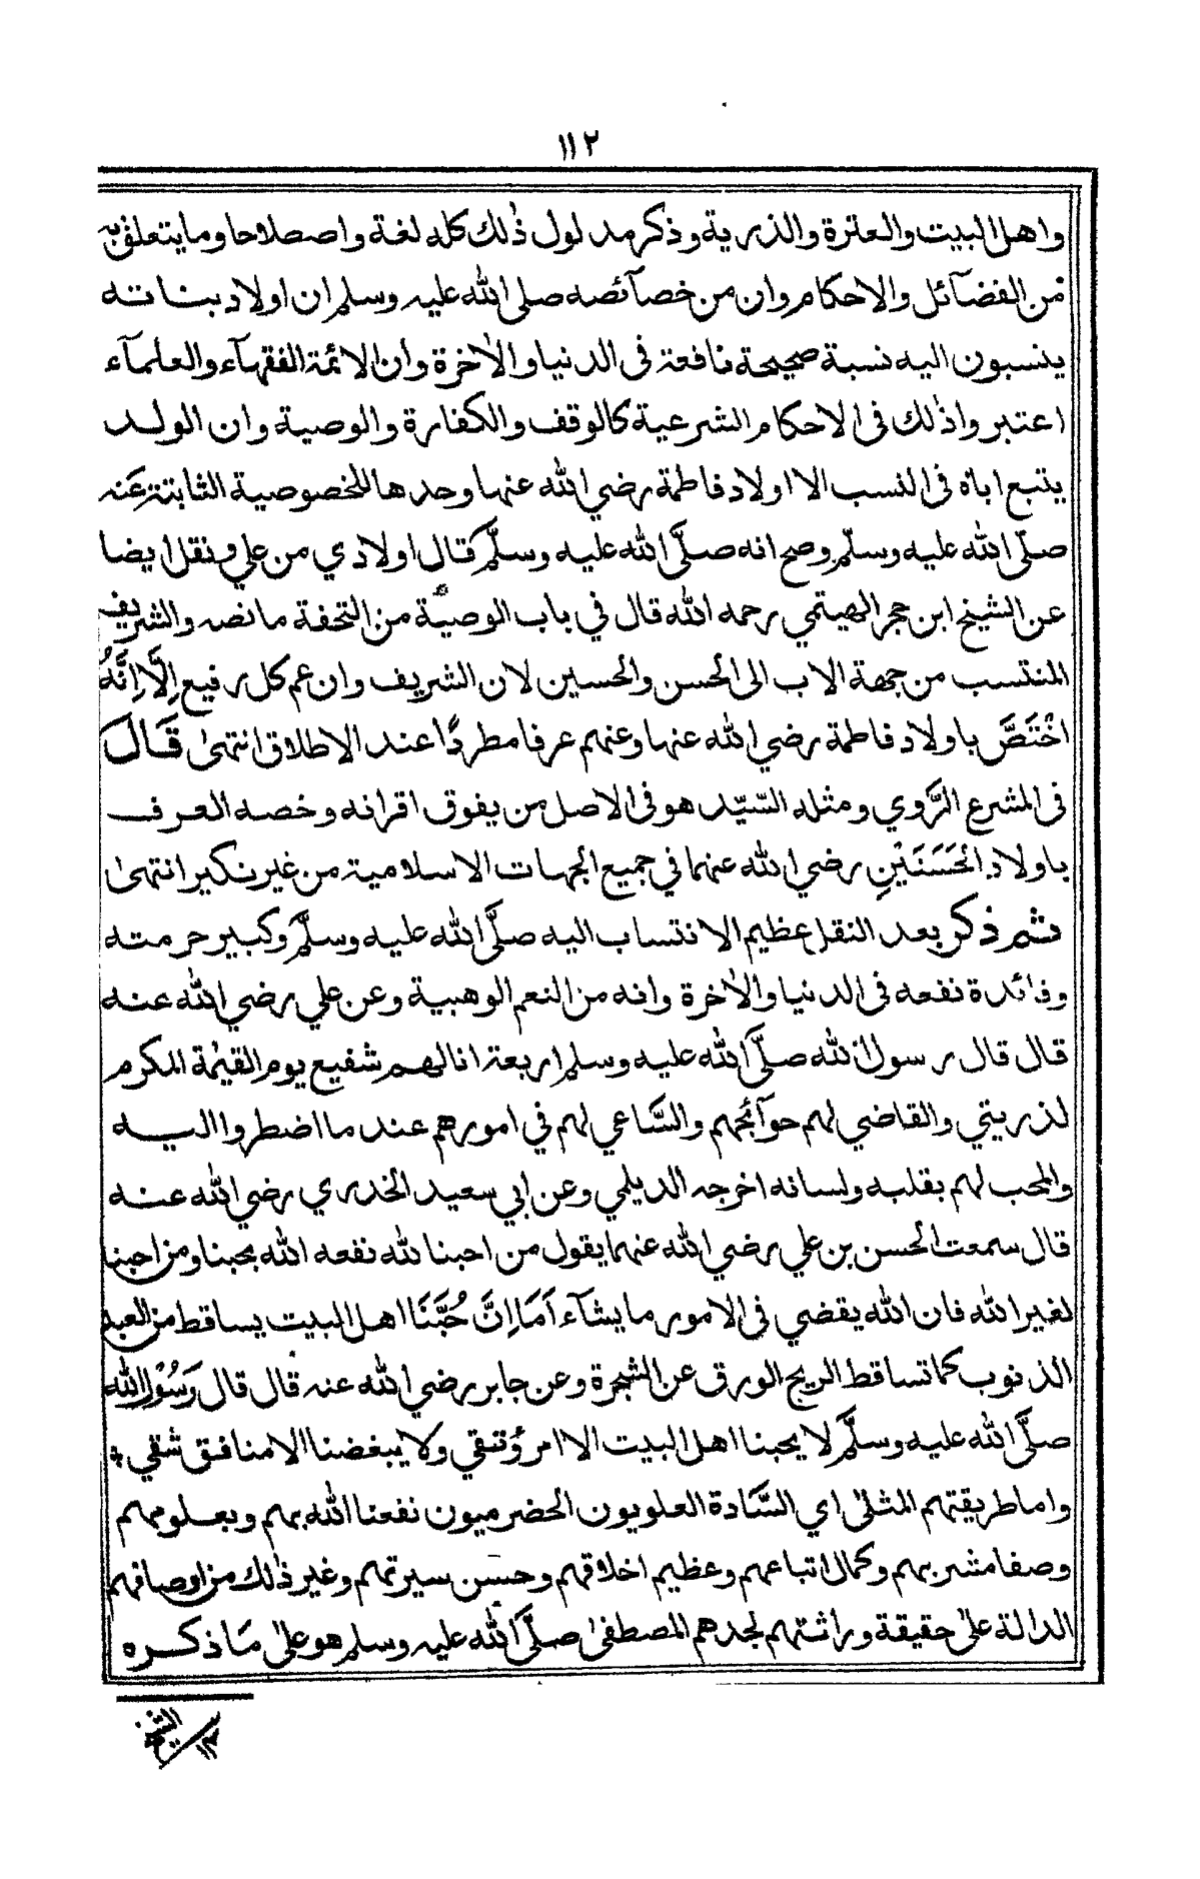 ١١٢
واهل البيت والعترة والذرية وذكر مدلول ذٰلك كله لغة واصطلاحا وما يتعلق به
من الفضآئل والاحكام وان من خصآئصه صلى الله عليه وسلم ان اولاد بناته
ينسبون اليه نسبة صحيحة نافعة فى الدنيا والاٰخرة وان الائمة الفقهآء والعلمآء
اعتبروا ذٰلك فى الاحكام الشرعية كالوقف والكفارة والوصية وان الولد
يتبع اباه فى النسب الا اولاد فاطمة رضي الله عنها وحدها للخصوصية الثابتة عنه
صلّى الله عليه وسلّم وصح انه صلَّى الله عليه وسلَّم قال اولادي من علي ونقل ايضا
عن الشيخ ابن حجر الهيتمي رحمه الله قال في باب الوصيّة من التحفة ما نصه والشريف
المنتسب من جهة الاب الى الحسن والحسين لان الشريف وان عم كل رفيع اِلَّا اِنَّهُ
اخْتَصَّ باولاد فاطمة رضي الله عنها وعنهم عرفا مطردًا عند الاطلاق انتهىٰ قَالَ
فى المشرع الرَّوي ومثله السّيّد هو فى الاصل من يفوق اقرانه وخصه العرف
باولاد الحَسَنَيْنِ رضي الله عنهما في جميع الجهات الاسلامية من غير نكير انتهىٰ
ثم ذكر بعد النقل عظيم الانتساب اليه صلَّى الله عليه وسلَّم وكبير حرمته
وفائدة نفعه فى الدنيا والاٰخرة وانه من النعم الوهبية وعن علي رضي الله عنه
قال قال رسول الله صلَّى الله عليه وسلم اربعة انا لهم شفيع يوم القيٰمة المكرم
لذريتي والقاضي لهم حوآئجهم والسَّاعي لهم في امورهم عند ما اضطروا اليه
والمحب لهم بقلبه ولسانه اخرجه الديلمي وعن ابي سعيد الخدري رضي الله عنه
قال سمعت الحسن بن علي رضي الله عنهما يقول من احبنا لله نفعه الله بحبنا ومن احبنا
لغير الله فان الله يقضي فى الامور ما يشآء اَمَا اِنَّ حُبَّنَا اهل البيت يساقط من العبد
الذنوب كما تساقط الريح الورق عن الشجرة وعن جابر رضي الله عنه قال قال رَسُوْلُ الله
صلَّى الله عليه وسلَّم لا يحبنا اهل البيت الا امرؤ تقي ولا يبغضنا الا منافق شقي ؛
واما طريقتهم المثلىٰ اي السَّادة العلويون الحضرميون نفعنا الله بهم وبعلومهم
وصفا مشربهم وكمال اتباعهم وعظيم اخلاقهم وحسن سيرتهم وغير ذٰلك من اوصافهم
الدالة علىٰ حقيقة وراثتهم لجدهم المصطفىٰ صلَّى الله عليه وسلم هو علىٰ مَا ذكره
الشيخ